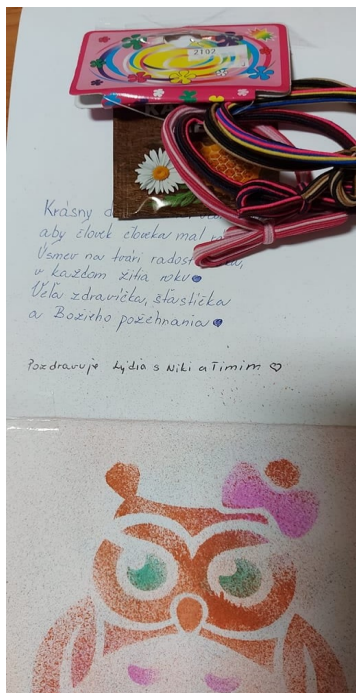 2102
Krásny d
aby človek človeka mal
Úsmev na tvári radosť
v každom žitia roku
Veľa zdravíčka, šťastíčka
a Božieho požehnania
Pozdravuje Lýdia s Niki a Timim